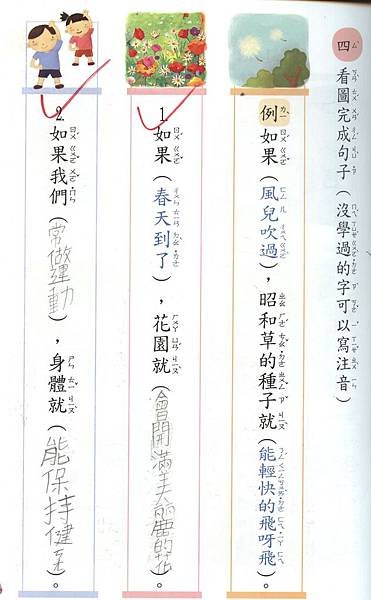 四 看圖完成句子（沒學過的字可以寫注音）
例 如果（風兒吹過），昭和草的種子就（能輕快的飛呀飛）。
1. 如果（春天到了），花園就（會開滿美麗的花）。
2. 如果我們（常做運動），身體就（能保持健）。